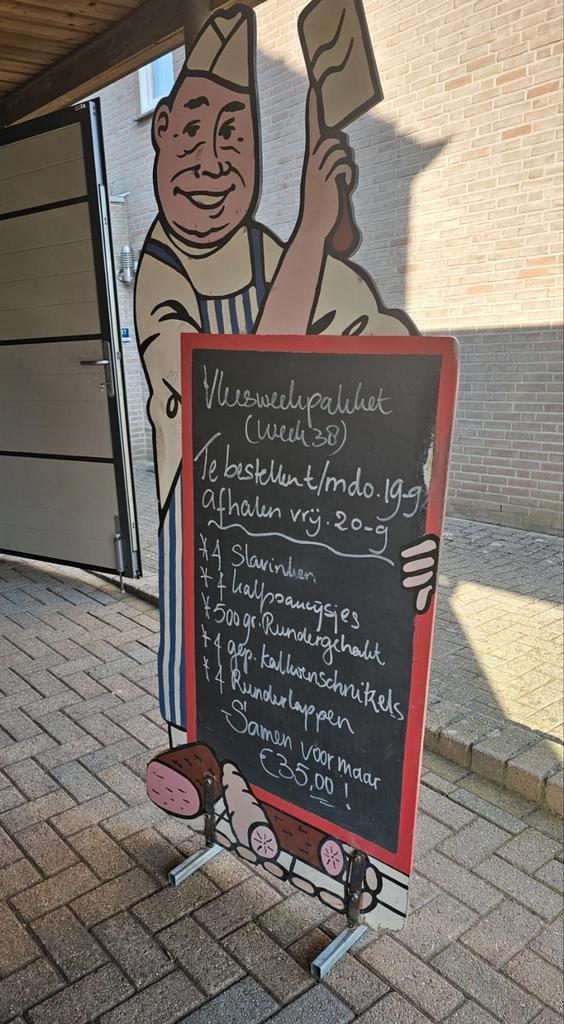 Vleesweekpakket
(week 38)
Te bestellen t/m do. 19-9
afhalen vrij. 20-9
* 4 Slavinken
* 4 kalfsaucijsjes
* 500 gr. Rundergehakt
* 4 gep. Kalkoenschnitzels
* 4 Runderlappen
Samen voor maar
€35,00!